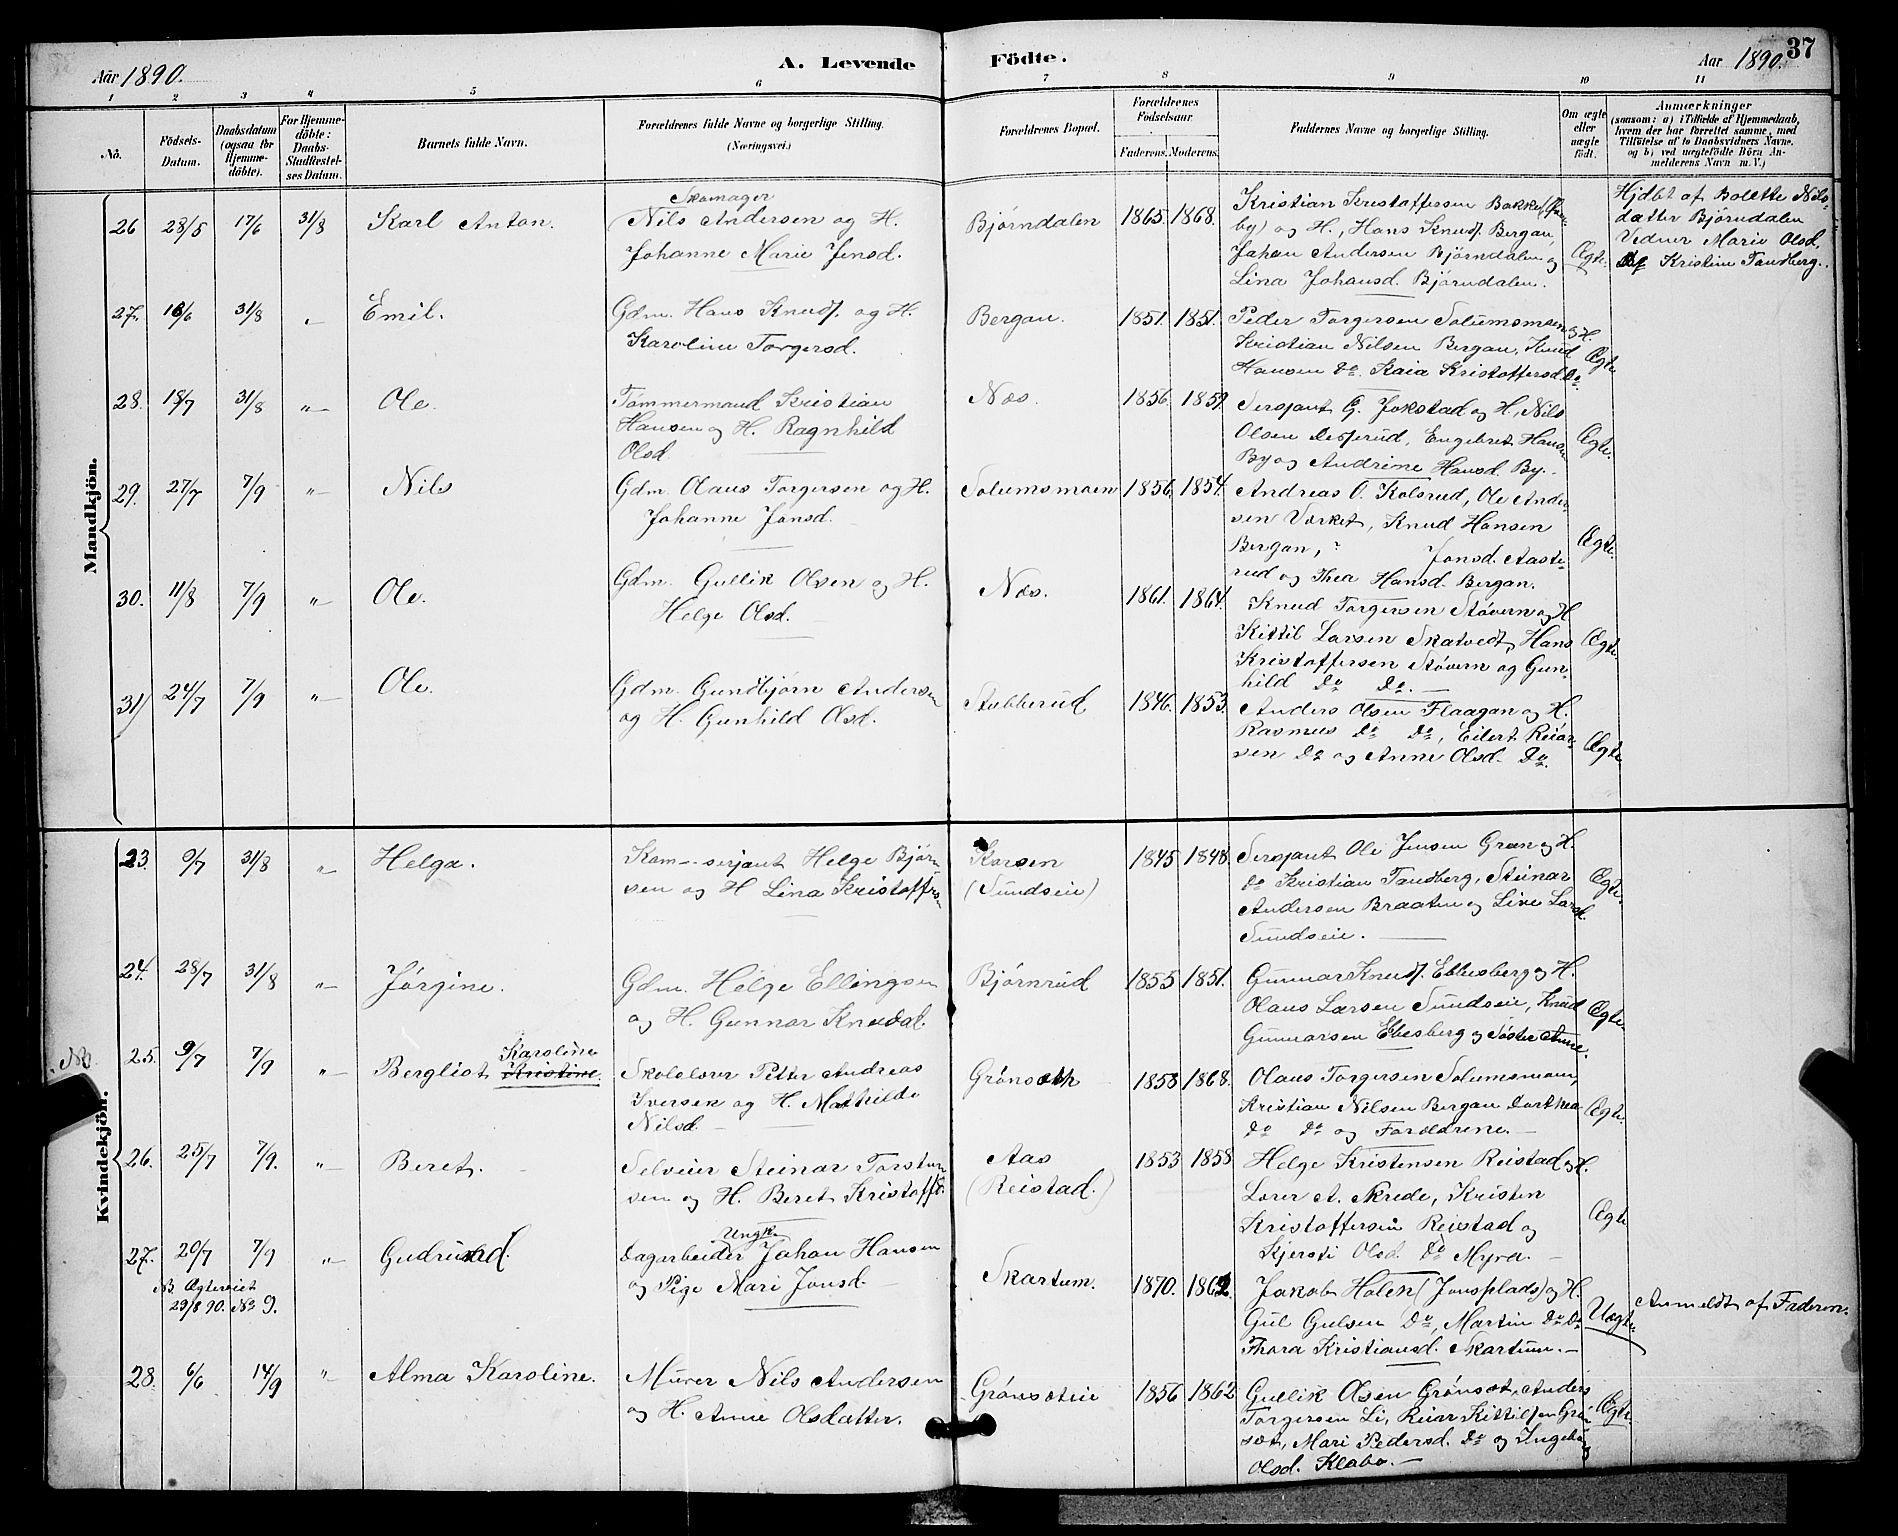 Aar 1890. A. Levende Födte. Aar 1890. 37
1 2 3 4 5 6 7 8 9 10 11
Nó. Födsels-Datum. Daabsdatum (ogsaa for Hjemme-döbte). For Hjemme-döbte: Daabs-Stadfæstel-ses Datum. Barnets fulde Navn. Forældrenes fulde Navne og borgerlige Stilling. (Næringsvei.) Forældrenes Bopæl. Forældrenes Födselsaar. Faderens. Moderens. Faddernes Navne og borgerlige Stilling. Om ægte eller uægte födt. Anmærkninger (saasom: a) i Tilfælde af Hjemmedaab, hvem der har forrettet samme, med Tilföielse af to Daabsvidners Navne, og b) ved uægtefödte Börn An-melderens Navn m. V.)
Mandkjön.
26 28/5 17/6 31/8 Karl Anton. Skomager
Nils Andersen og H.
Johanne Marie Jensd.
Bjørndalen 1865. 1868.
Kristian Kristoffersen Bakke
by) og H., Hans Knuds. Bergan,
Johan Andersen Bjørndalen og
Lina Johansd. Bjørndalen.
Ægte.
Hjdbt af Bolette Nils-
datter Bjørndalen
Vidner Marie Olsd.
Kristine Tandberg.
27. 16/6 31/8 „ Emil.
Gdm. Hans Knuds. og H.
Karoline Torgersd.
Bergan. 1851. 1851.
Peder Torgersen Solumsmoen og H.
Kristian Nilsen Bergan, Knud
Hansen Do. Kaia Kristoffersd Do
Ægte
28. 18/7 31/8 „ Ole.
Tømmermand Kristian
Hansen og H. Ragnhild
Olsd.
Næs. 1856. 1859.
Sersjant G. Jokstad og H, Nils
Olsen Desserud, Engebret Hansen
By og Andrine Hansd. By.
Ægte.
29. 27/7 7/9 „ Nils
Gdm. Olaus Torgersen og H.
Johanne Jonsd.
Solumsmoen 1856. 1854.
Andreas O. Kolsrud, Ole Ander-
sen Værket, Knud Hansen
Bergan, ? Jonsd. Aaste-
rud og Thea Hansd. Bergan.
Ægte.
30. 11/8 7/9 „ Ole.
Gdm. Gullik Olsen og H.
Helge Olsd.
Næs. 1861. 1864.
Knud Torgersen Støvern og H
Kittil Larsen Skatvedt, Hans
Kristoffersen Støvern og Gun-
hild Do Do.
Ægte.
31) 24/7 7/9 „ Ole.
Gdm. Gundbjørn Andersen
og H. Gunhild Olsd.
Stubberud 1846. 1853.
Anders Olsen Flaagan og H.
Rasmus Do Do, Eilert Reiar-
sen Do og Anne Olsd. Do.
Ægte
Kvindekjön.
23. 9/7 31/8 „ Helga.
Kom--serjant Helge Bjørn
sen og H Lina Kristoffers
Korsen
(Sundseie)
1845 1848.
Sersjant Ole Jensen Gran og H.
Do Kristian Tandberg, Steinar
Andersen Braaten og Live Larsd.
Sundseie.
Ægte.
24. 28/7 31/8 „ Jørgine.
Gdm. Helge Ellingsen
og H. Gunnor Knudsd.
Bjørnrud 1855 1851.
Gunnar Knuds. Ebbesberg og H.
Olaus Larsen Sundseie, Knud
Gunnarsen Ebbesberg og Søster Anne.
Ægte.
NB. 25. 9/7 7/9 „ Bergliot Karoline Kristine.
Skolelærer Petter Andreas
Iversen og H. Mathilde
Nilsd.
Grønseth 1858 1868.
Olaus Torgersen Solumsmoen,
Kristian Nilsen Bergan Dorthea
Do Do og Forældrene.
Ægte.
26. 25/7 7/9. „ Beret.
Selveier Steinar Torsten
sen og H. Beret Kristoffd.
Aas
(Reistad.)
1853 1858.
Helge Kristensen Reistad og H.
Lærer A. Skrede, Kristen
Kristoffersen Reistad og
Kjersti Olsd. Do Myra.
Ægte
27. 20/7 7/9 „ Gudrund.
NB. Ægteviet
29/8 90. No 9.
Ungk.
Dagarbeider Johan Hansen
og Pige Mari Jonsd.
Skartum. 1870. 1862.
Jakob Holen (Jonsplads) og H.
Gul Gulsen Do, Martin Do Do
Thora Kristiansd. Skartum.
Uægte
Anmeldt af Faderen.
28. 6/6 14/9 „ Alma Karoline.
Murer Nils Andersen
og H. Anne Olsdatter.
Grønsæteie 1856 1862
Gullik Olsen Grønset, Anders
Torgersen Li, Reiar Kittilsen Grøn
sæt, Mari Pedersd. Do og Ingebor
Olsd. Klabo.
Ægte